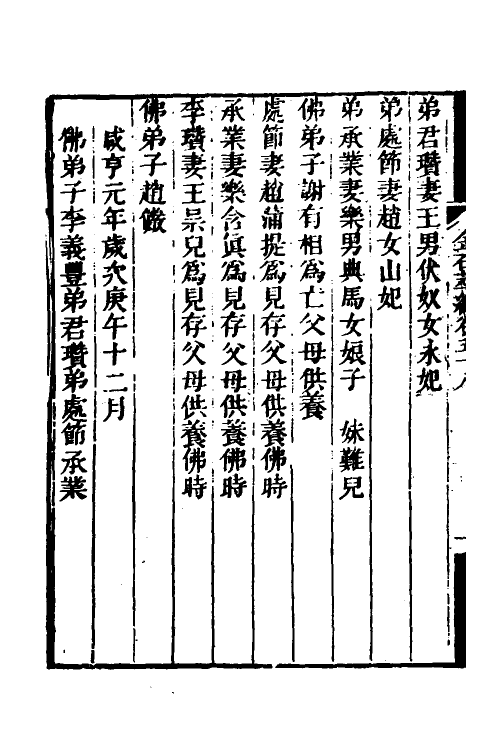 金石萃編卷五十八
弟君瓚妻王男伏奴女永妃
弟處節妻趙女山妃
弟承業妻樂男典馬女娘子　妹難兒
佛弟子謝有相爲亡父母供養
處節妻趙蒲提爲見存父母供養佛時
承業妻樂含真爲見存父母供養佛時
李瓚妻王杲兒爲見存父母供養佛時
佛弟子趙儼
咸亨元年歲次庚午十二月
佛弟子李義豐弟君瓚弟處節承業